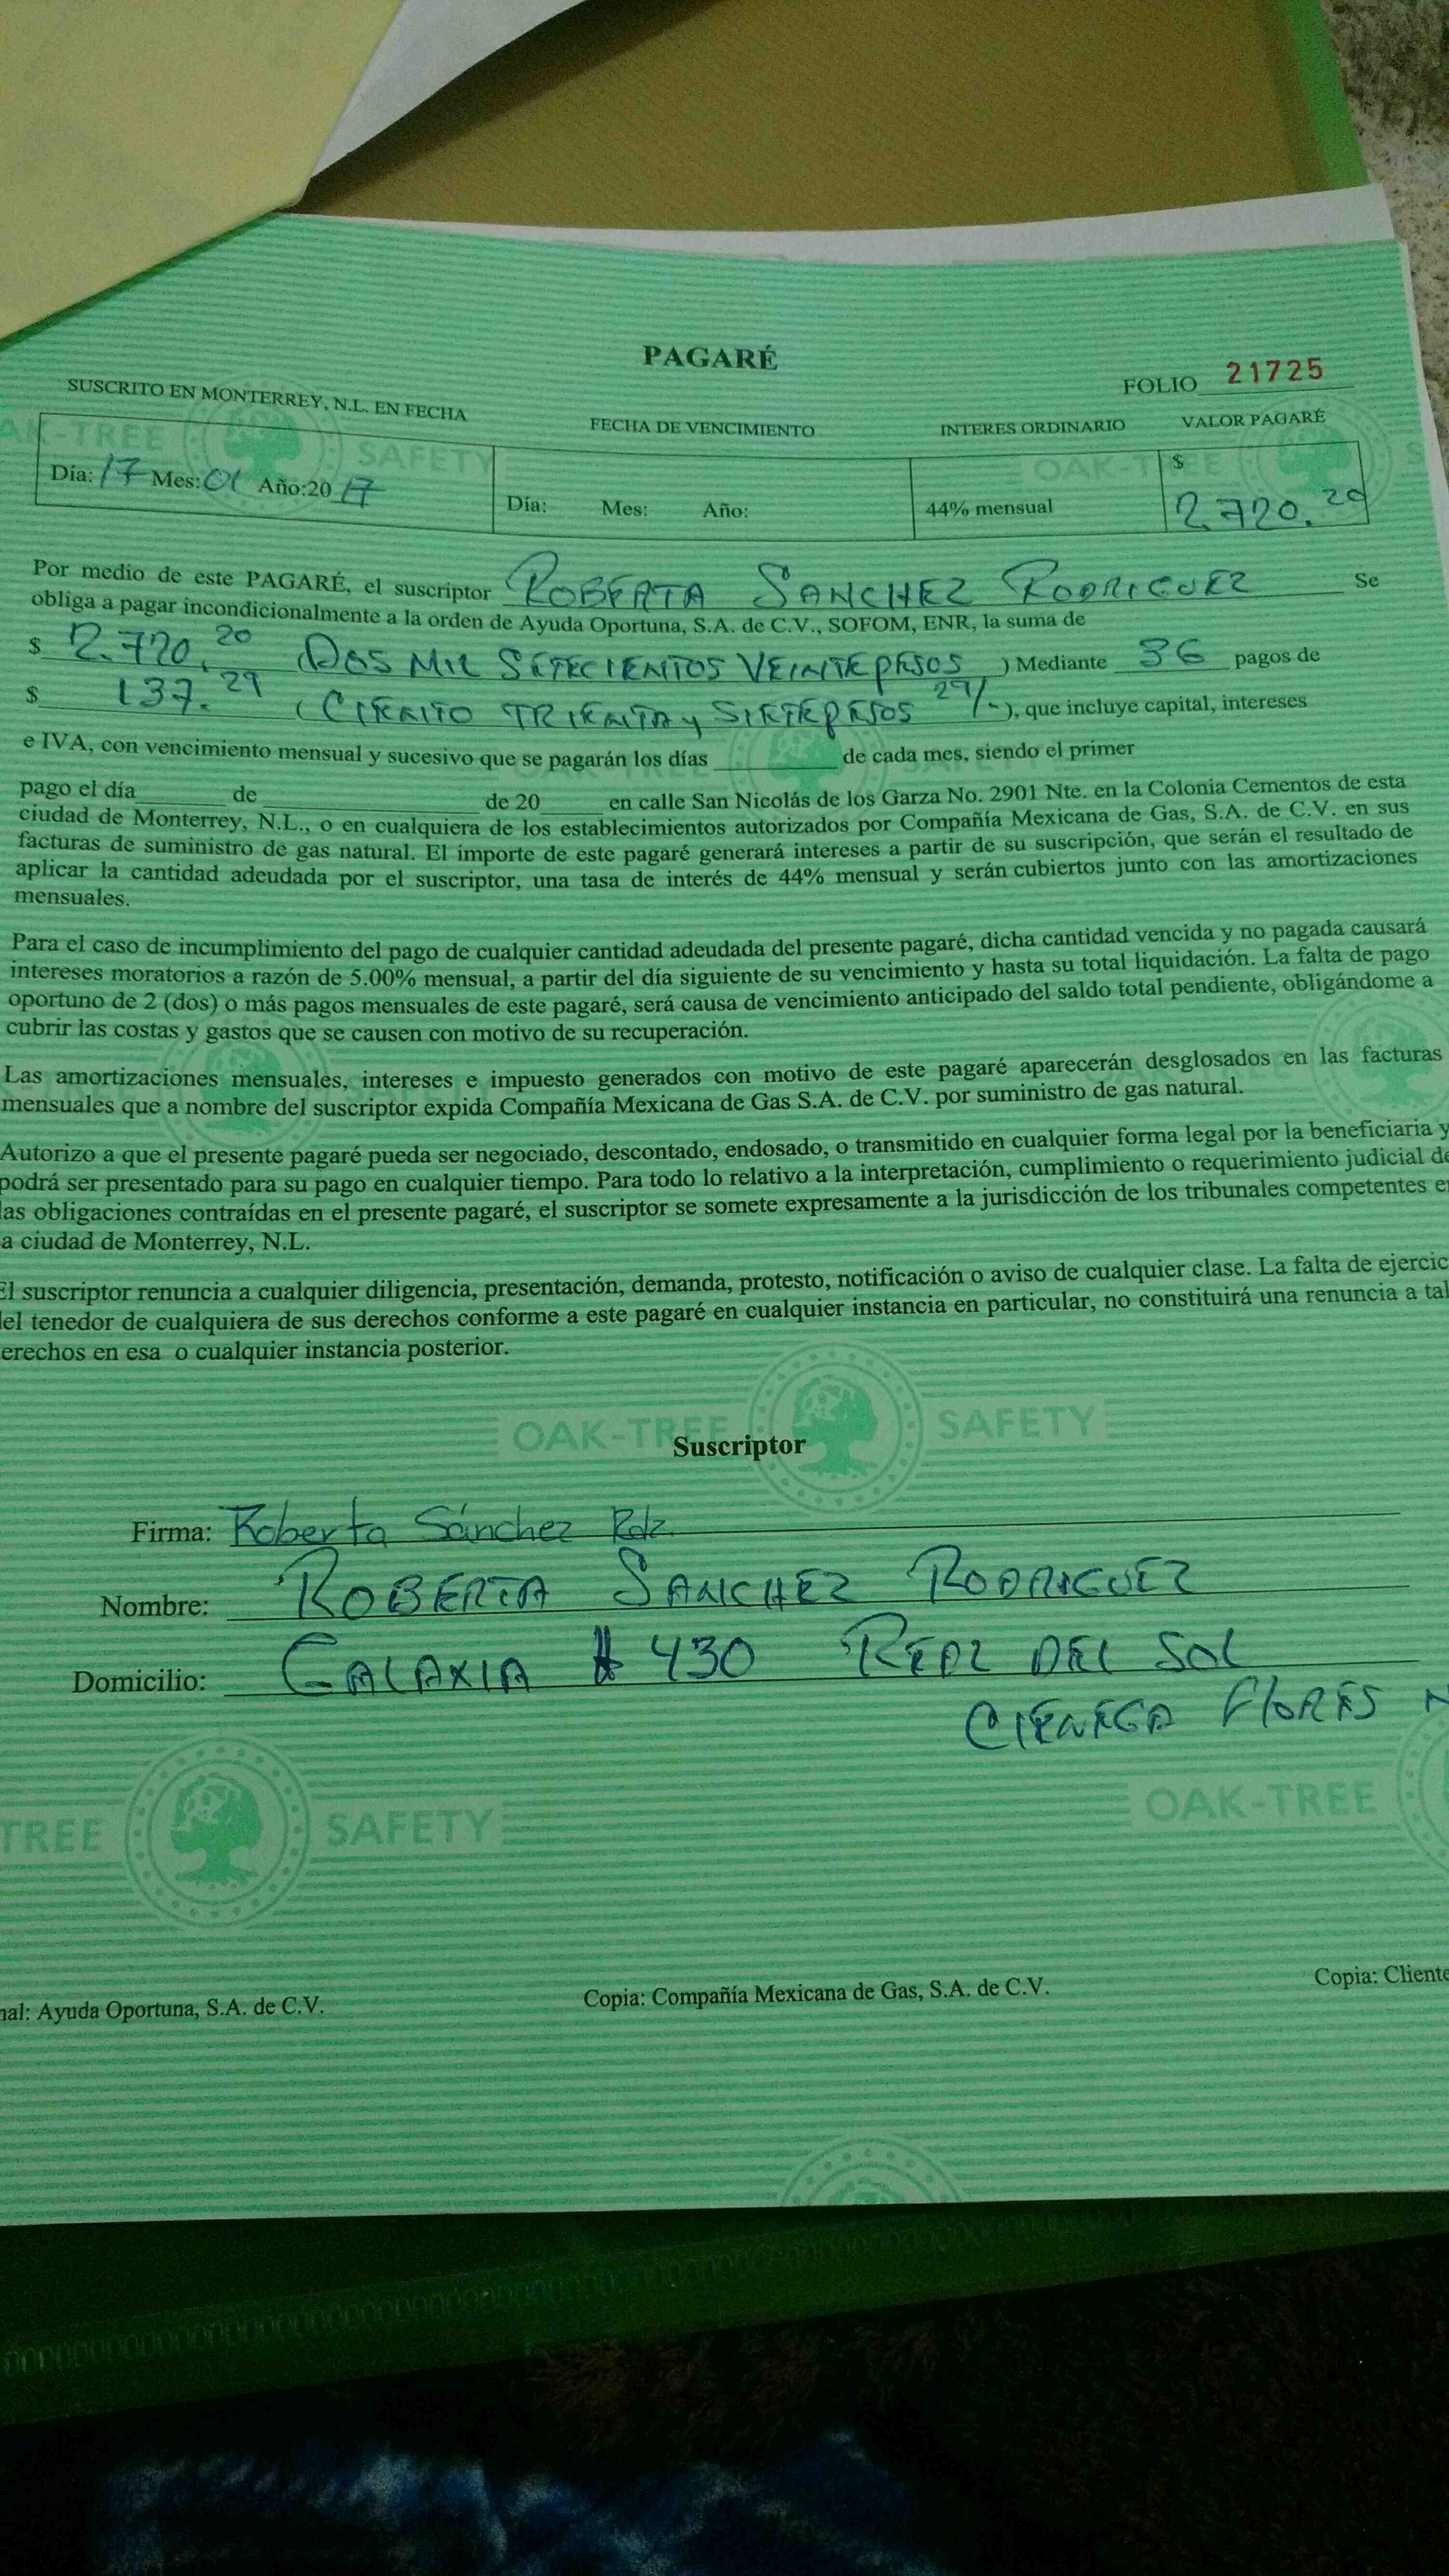 PAGARÉ
FOLIO 21725
SUSCRITO EN MONTERREY, N.L. EN FECHA FECHA DE VENCIMIENTO INTERES ORDINARIO VALOR PAGARÉ
Día: 17 Mes: 01 Año:20 17 Día: Mes: Año: 44% mensual $ 2.720.20
Por medio de este PAGARÉ, el suscriptor ROBERTA SANCHEZ RODRIGUEZ Se
obliga a pagar incondicionalmente a la orden de Ayuda Oportuna, S.A. de C.V., SOFOM, ENR, la suma de
$ 2.720.20 (DOS MIL SETECIENTOS VEINTE PESOS ) Mediante 36 pagos de
$ 137.29 (CIENTO TRIENTA Y SIETE PESOS 29/- ), que incluye capital, intereses
e IVA, con vencimiento mensual y sucesivo que se pagarán los días de cada mes, siendo el primer
pago el día de de 20 en calle San Nicolás de los Garza No. 2901 Nte. en la Colonia Cementos de esta
ciudad de Monterrey, N.L., o en cualquiera de los establecimientos autorizados por Compañía Mexicana de Gas, S.A. de C.V. en sus
facturas de suministro de gas natural. El importe de este pagaré generará intereses a partir de su suscripción, que serán el resultado de
aplicar la cantidad adeudada por el suscriptor, una tasa de interés de 44% mensual y serán cubiertos junto con las amortizaciones
mensuales.
Para el caso de incumplimiento del pago de cualquier cantidad adeudada del presente pagaré, dicha cantidad vencida y no pagada causará
intereses moratorios a razón de 5.00% mensual, a partir del día siguiente de su vencimiento y hasta su total liquidación. La falta de pago
oportuno de 2 (dos) o más pagos mensuales de este pagaré, será causa de vencimiento anticipado del saldo total pendiente, obligándome a
cubrir las costas y gastos que se causen con motivo de su recuperación.
Las amortizaciones mensuales, intereses e impuesto generados con motivo de este pagaré aparecerán desglosados en las facturas
mensuales que a nombre del suscriptor expida Compañía Mexicana de Gas S.A. de C.V. por suministro de gas natural.
Autorizo a que el presente pagaré pueda ser negociado, descontado, endosado, o transmitido en cualquier forma legal por la beneficiaria y
podrá ser presentado para su pago en cualquier tiempo. Para todo lo relativo a la interpretación, cumplimiento o requerimiento judicial de
las obligaciones contraídas en el presente pagaré, el suscriptor se somete expresamente a la jurisdicción de los tribunales competentes e
a ciudad de Monterrey, N.L.
El suscriptor renuncia a cualquier diligencia, presentación, demanda, protesto, notificación o aviso de cualquier clase. La falta de ejercic
del tenedor de cualquiera de sus derechos conforme a este pagaré en cualquier instancia en particular, no constituirá una renuncia a tal
erechos en esa o cualquier instancia posterior.
OAK-TREE SAFETY
Suscriptor
Firma: Roberta Sánchez Rdz.
Nombre: ROBERTA SANCHEZ RODRIGUEZ
Domicilio: GALAXIA # 430 REAL DEL SOL
CIENEGA FLORES N
TREE SAFETY OAK-TREE
nal: Ayuda Oportuna, S.A. de C.V. Copia: Compañía Mexicana de Gas, S.A. de C.V. Copia: Cliente